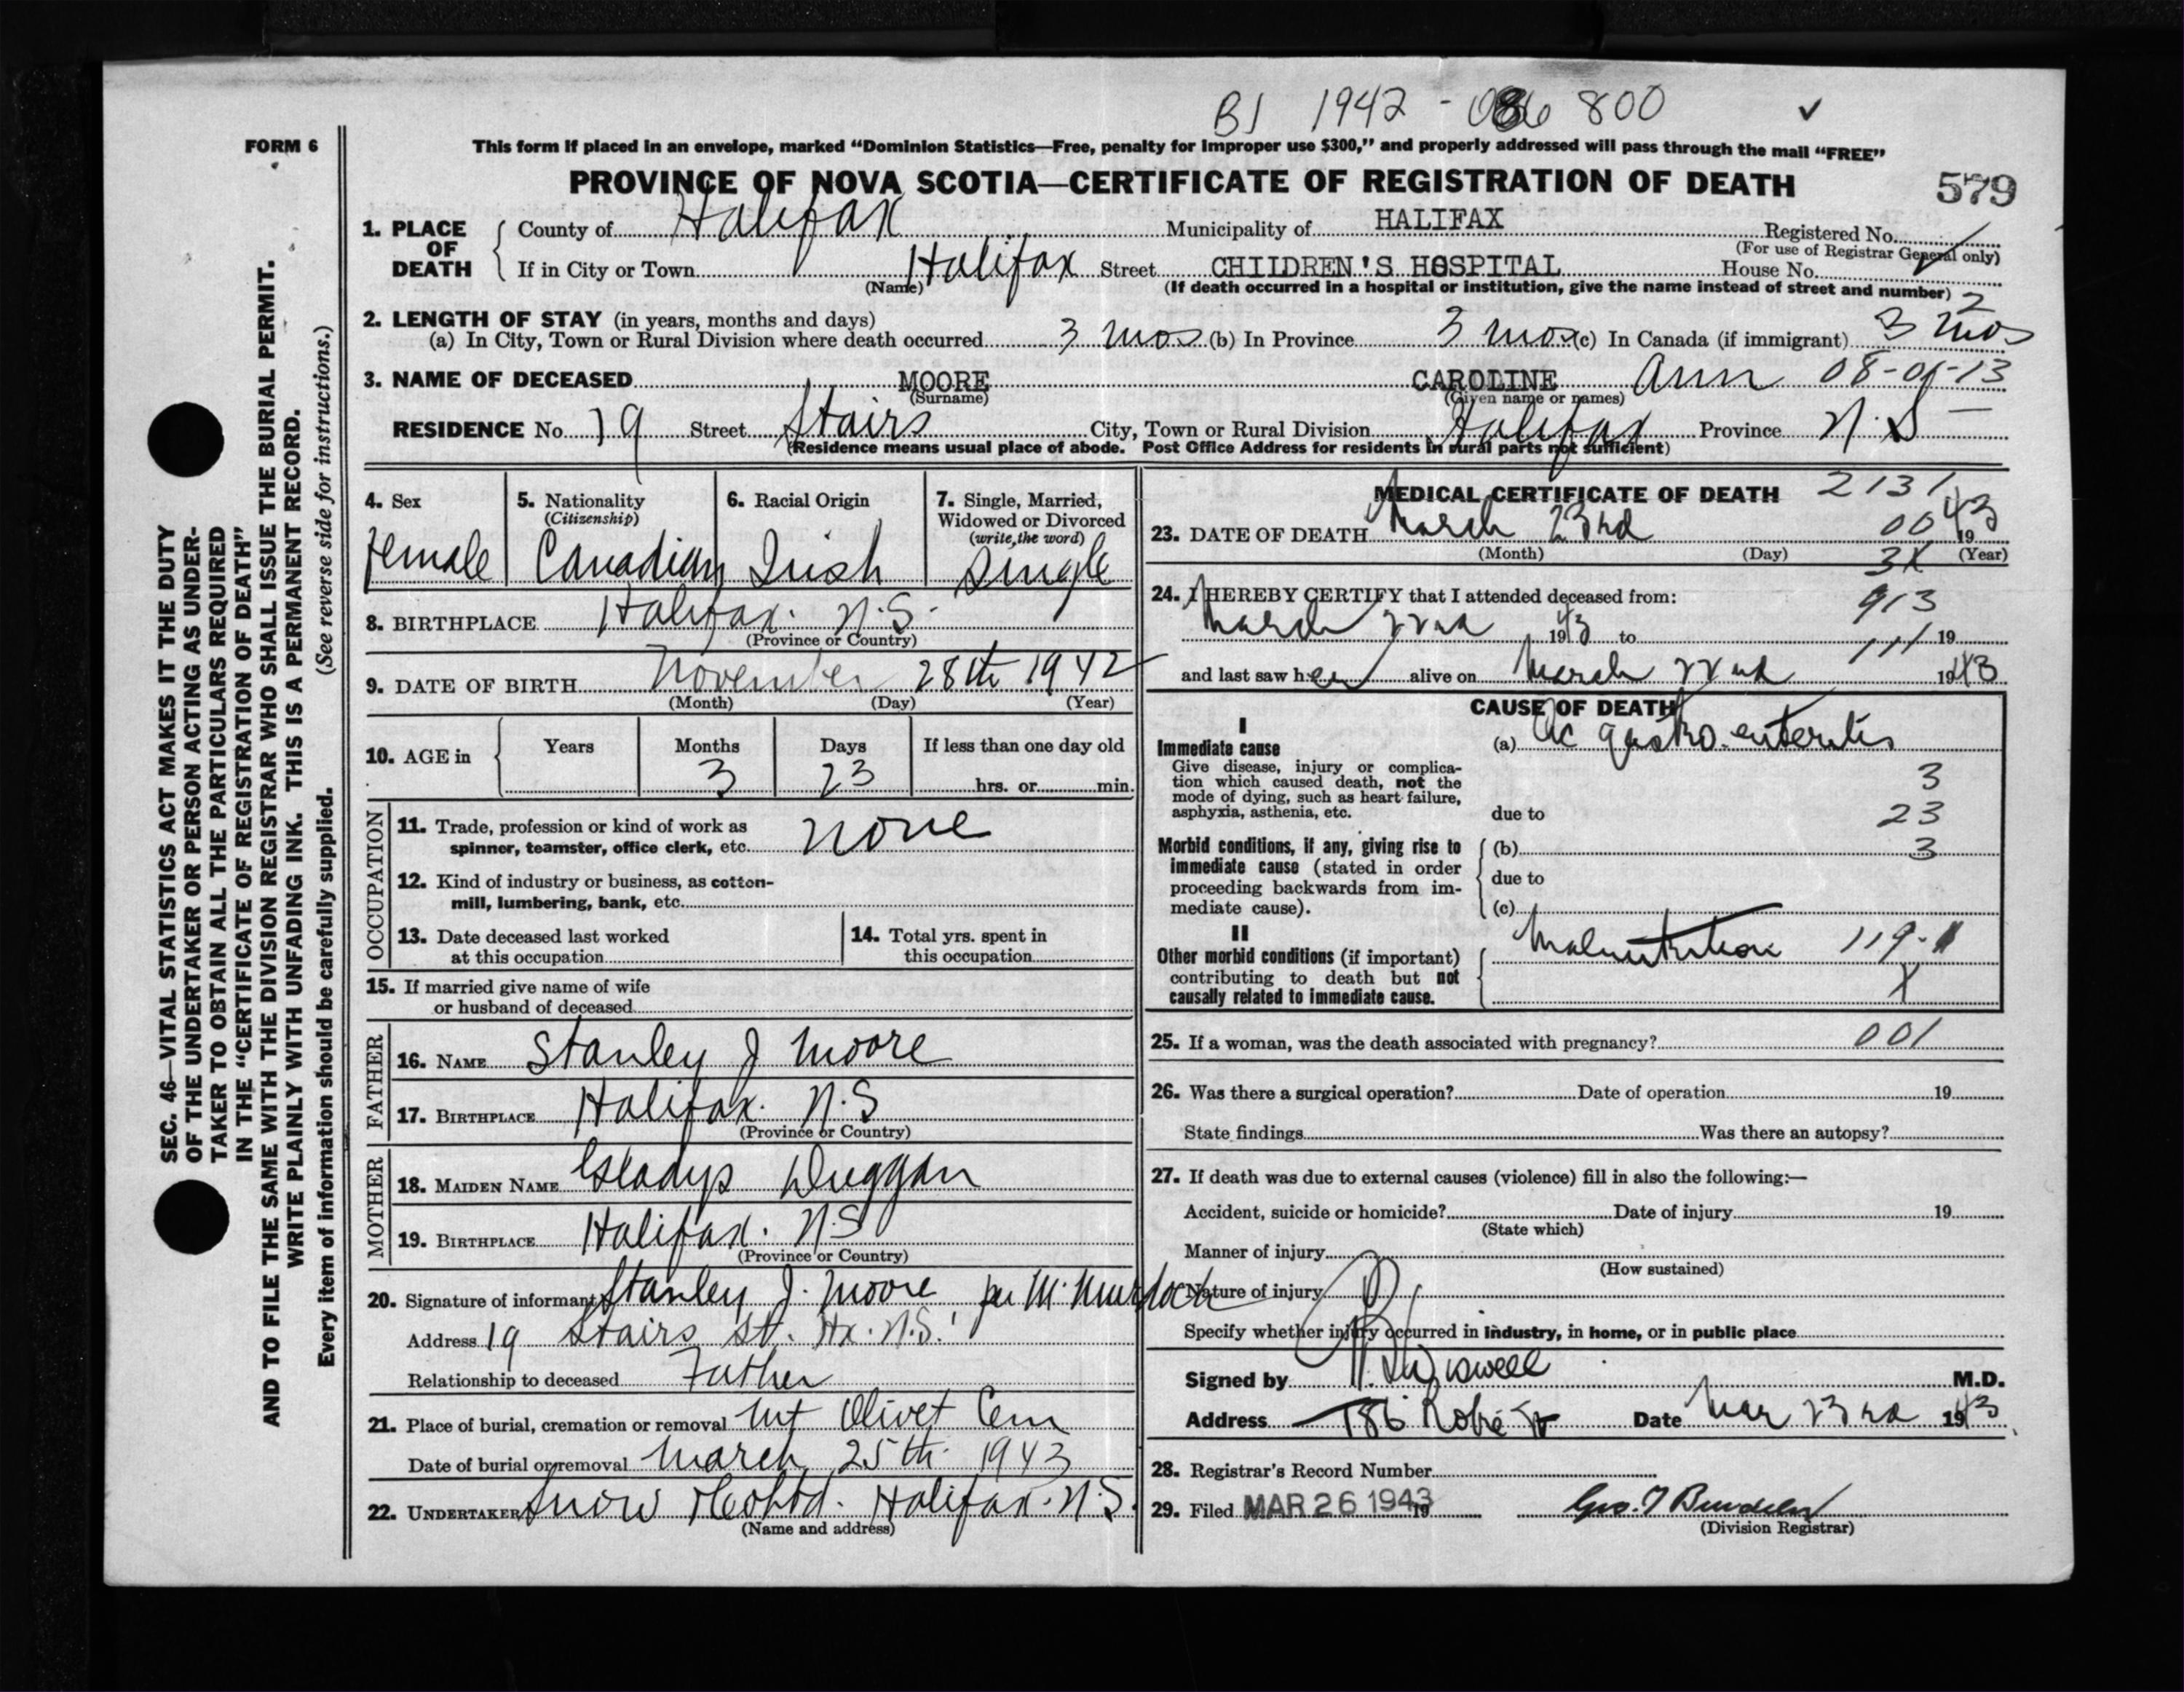 BJ 1942 - 086 800 ✓
FORM 6
This form if placed in an envelope, marked “Dominion Statistics—Free, penalty for improper use $300,” and properly addressed will pass through the mail “FREE”
PROVINCE OF NOVA SCOTIA—CERTIFICATE OF REGISTRATION OF DEATH 579
1. PLACE OF DEATH
County of Halifax Municipality of HALIFAX Registered No.
(For use of Registrar General only)
If in City or Town Halifax Street CHILDREN'S HOSPITAL House No.
(Name) (If death occurred in a hospital or institution, give the name instead of street and number) 2
2. LENGTH OF STAY (in years, months and days)
(a) In City, Town or Rural Division where death occurred 3 mos (b) In Province 3 mos (c) In Canada (if immigrant) 3 mos
3. NAME OF DECEASED MOORE CAROLINE Ann 08-01-13
(Surname) (Given name or names)
RESIDENCE No. 19 Street Stairs City, Town or Rural Division Halifax Province N.S
(Residence means usual place of abode. Post Office Address for residents in rural parts not sufficient)
4. Sex
Female
5. Nationality
(Citizenship)
Canadian
6. Racial Origin
Irish
7. Single, Married,
Widowed or Divorced
(write the word)
Single
8. BIRTHPLACE Halifax. N.S.
(Province or Country)
9. DATE OF BIRTH November 28th 1942
(Month) (Day) (Year)
10. AGE in
Years Months Days If less than one day old
3 23
hrs. or min.
OCCUPATION
11. Trade, profession or kind of work as
spinner, teamster, office clerk, etc. none
12. Kind of industry or business, as cotton-
mill, lumbering, bank, etc.
13. Date deceased last worked
at this occupation
14. Total yrs. spent in
this occupation
15. If married give name of wife
or husband of deceased
FATHER
16. NAME Stanley J Moore
17. BIRTHPLACE Halifax. N.S
(Province or Country)
MOTHER
18. MAIDEN NAME Gladys Duggan
19. BIRTHPLACE Halifax. N.S
(Province or Country)
20. Signature of informant Stanley J. Moore per M. Murdoch
Address 19 Stairs St. Hx. N.S.
Relationship to deceased Father
21. Place of burial, cremation or removal Mt Olivet Cem
Date of burial or removal March 25th 1943
22. UNDERTAKER Snow & Co Ltd. Halifax. N.S.
(Name and address)
MEDICAL CERTIFICATE OF DEATH 2131
23. DATE OF DEATH March 23rd 00 1943
(Month) (Day) (Year)
3X
24. I HEREBY CERTIFY that I attended deceased from: 913
March 22nd 1943 to 111 19
and last saw her alive on March 22nd 1943
CAUSE OF DEATH
I
Immediate cause (a) Ac gastro-enteritis
Give disease, injury or complica-
tion which caused death, not the
mode of dying, such as heart failure,
asphyxia, asthenia, etc.
3
due to 23
Morbid conditions, if any, giving rise to
immediate cause (stated in order
proceeding backwards from im-
mediate cause).
(b) 3
due to
(c)
II
Other morbid conditions (if important)
contributing to death but not
causally related to immediate cause.
Malnutrition 119-1
X
25. If a woman, was the death associated with pregnancy? 001
26. Was there a surgical operation? Date of operation 19
State findings Was there an autopsy?
27. If death was due to external causes (violence) fill in also the following:—
Accident, suicide or homicide? Date of injury 19
(State which)
Manner of injury
(How sustained)
Nature of injury
Specify whether injury occurred in industry, in home, or in public place
Signed by M.D.
Address 186 Robie St Date Mar 23rd 1943
28. Registrar's Record Number
29. Filed MAR 26 1943 19
(Division Registrar)
SEC. 46—VITAL STATISTICS ACT MAKES IT THE DUTY
OF THE UNDERTAKER OR PERSON ACTING AS UNDER-
TAKER TO OBTAIN ALL THE PARTICULARS REQUIRED
IN THE “CERTIFICATE OF REGISTRATION OF DEATH”
AND TO FILE THE SAME WITH THE DIVISION REGISTRAR WHO SHALL ISSUE THE BURIAL PERMIT.
WRITE PLAINLY WITH UNFADING INK. THIS IS A PERMANENT RECORD.
Every item of information should be carefully supplied. (See reverse side for instructions.)